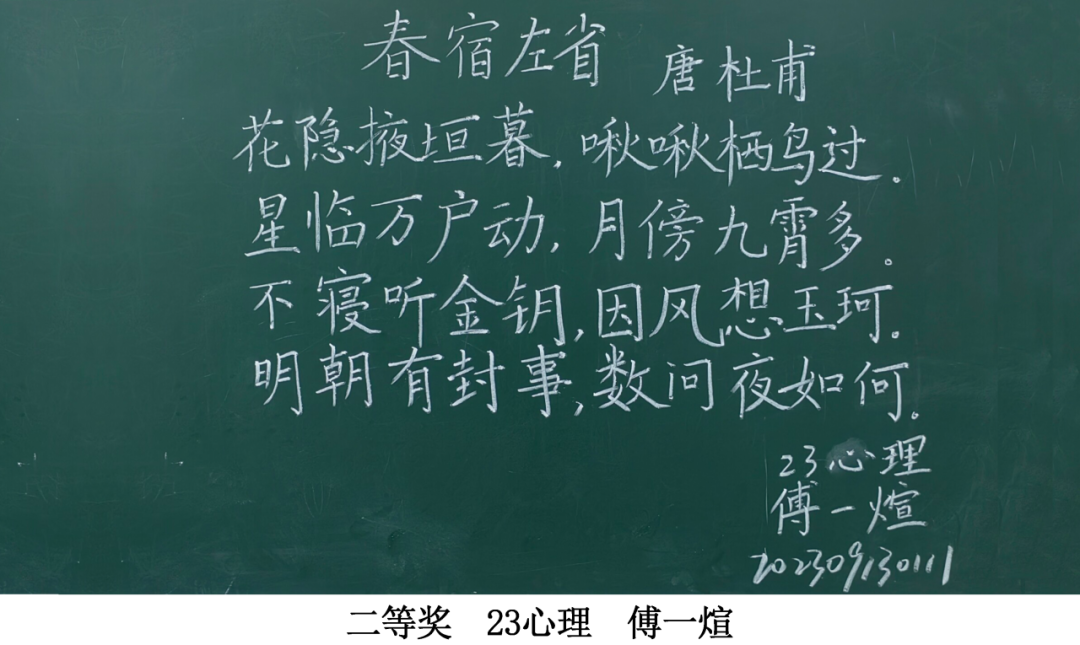 春宿左省 唐杜甫
花隐掖垣暮,啾啾栖鸟过。
星临万户动,月傍九霄多。
不寝听金钥,因风想玉珂。
明朝有封事,数问夜如何。
23心理
傅一煊
202309130111
二等奖 23心理 傅一煊